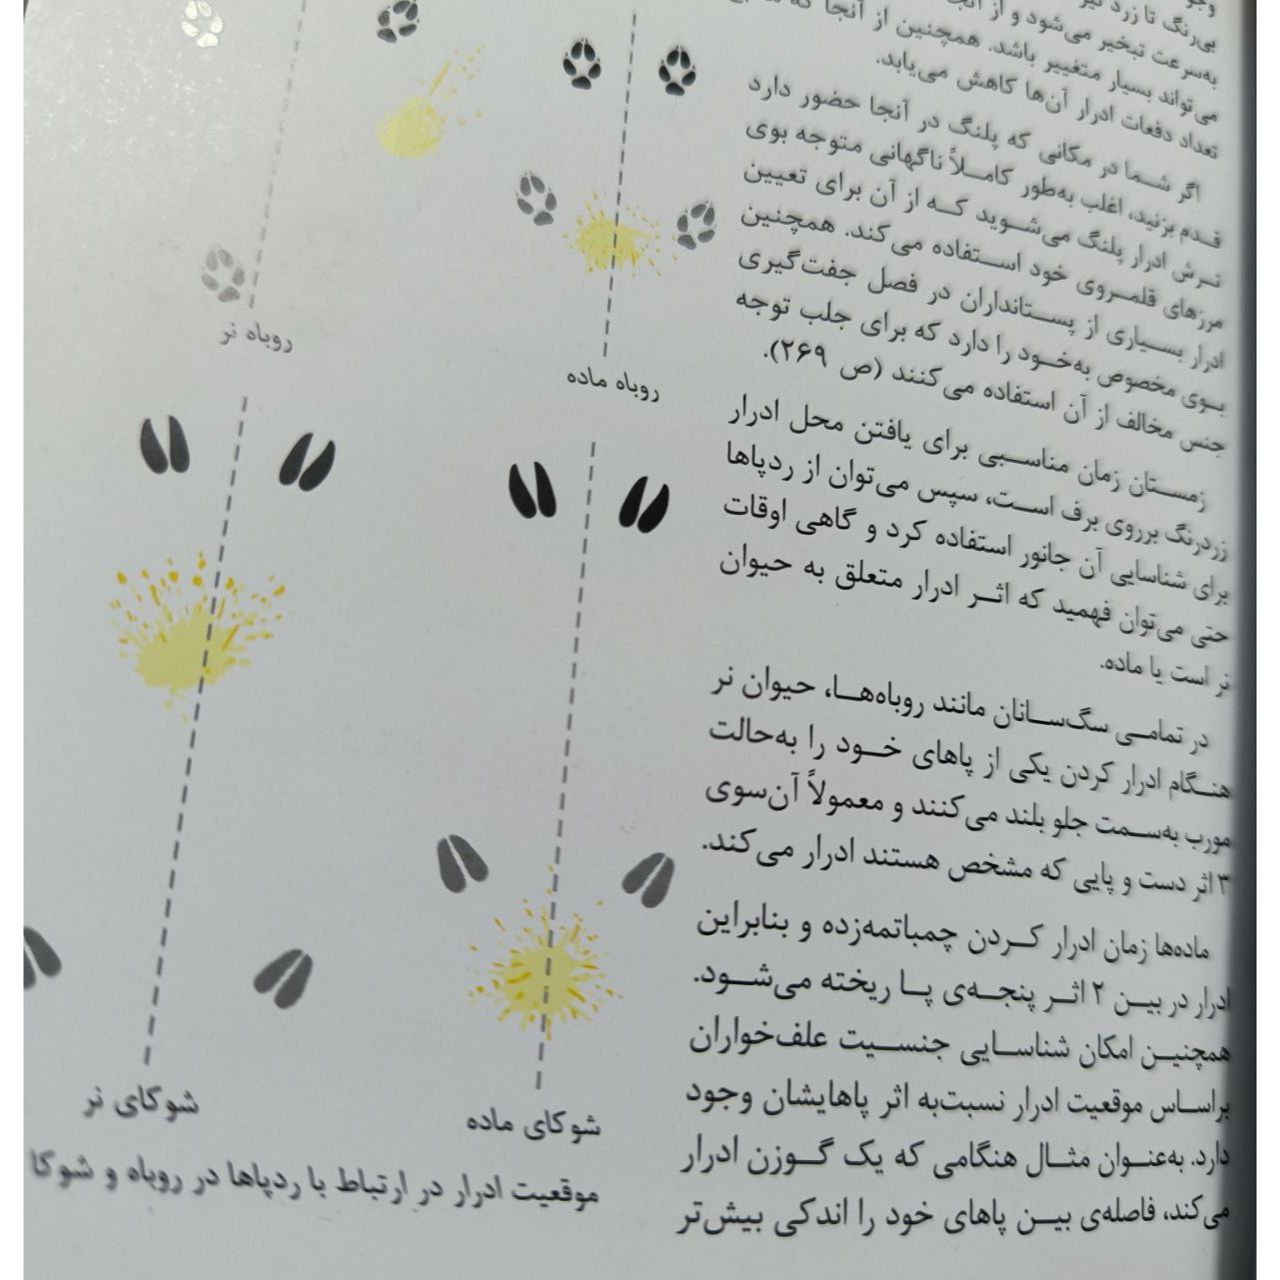 بی‌رنگ تا زرد
به‌سرعت تبخیر می‌شود و از
می‌تواند بسیار متغییر باشد. همچنین از آنجا که
تعداد دفعات ادرار آن‌ها کاهش می‌یابد.
اگر شما در مکانی که پلنگ در آنجا حضور دارد
قدم بزنید، اغلب به‌طور کاملاً ناگهانی متوجه بوی
ترش ادرار پلنگ می‌شوید که از آن برای تعیین
مرزهای قلمروی خود استفاده می‌کند. همچنین
ادرار بسیاری از پستانداران در فصل جفت‌گیری
بوی مخصوص به‌خود را دارد که برای جلب توجه
جنس مخالف از آن استفاده می‌کنند (ص ۲۶۹).
زمستان زمان مناسبی برای یافتن محل ادرار
زردرنگ برروی برف است، سپس می‌توان از ردپاها
برای شناسایی آن جانور استفاده کرد و گاهی اوقات
حتی می‌توان فهمید که اثر ادرار متعلق به حیوان
نر است یا ماده.
در تمامی سگ‌سانان مانند روباه‌ها، حیوان نر
هنگام ادرار کردن یکی از پاهای خود را به‌حالت
مورب به‌سمت جلو بلند می‌کنند و معمولاً آن‌سوی
۳ اثر دست و پایی که مشخص هستند ادرار می‌کند.
ماده‌ها زمان ادرار کردن چمباتمه‌زده و بنابراین
ادرار در بین ۲ اثر پنجه‌ی پا ریخته می‌شود.
همچنین امکان شناسایی جنسیت علف‌خواران
براساس موقعیت ادرار نسبت‌به اثر پاهایشان وجود
دارد. به‌عنوان مثال هنگامی که یک گوزن ادرار
می‌کند، فاصله‌ی بین پاهای خود را اندکی بیش‌تر
روباه ماده
روباه نر
شوکای ماده
شوکای نر
موقعیت ادرار در ارتباط با ردپاها در روباه و شوکا